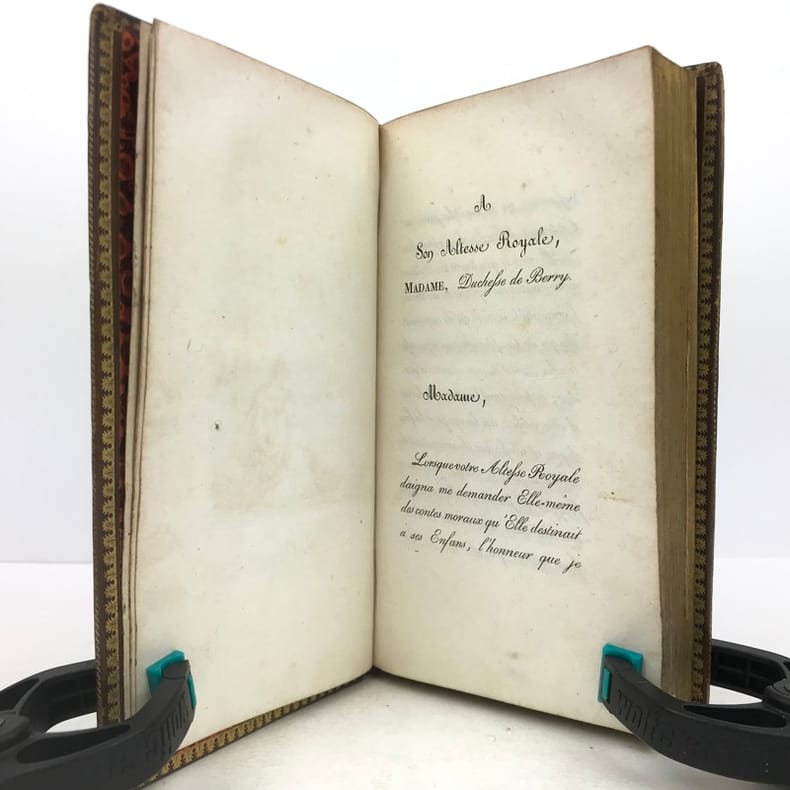 A
Son Altesse Royale,
MADAME, Duchesse de Berry.
Madame,
Lorsque votre Altesse Royale
daigna me demander Elle-même
des contes moraux qu'Elle destinait
a ses Enfans, l'honneur que je